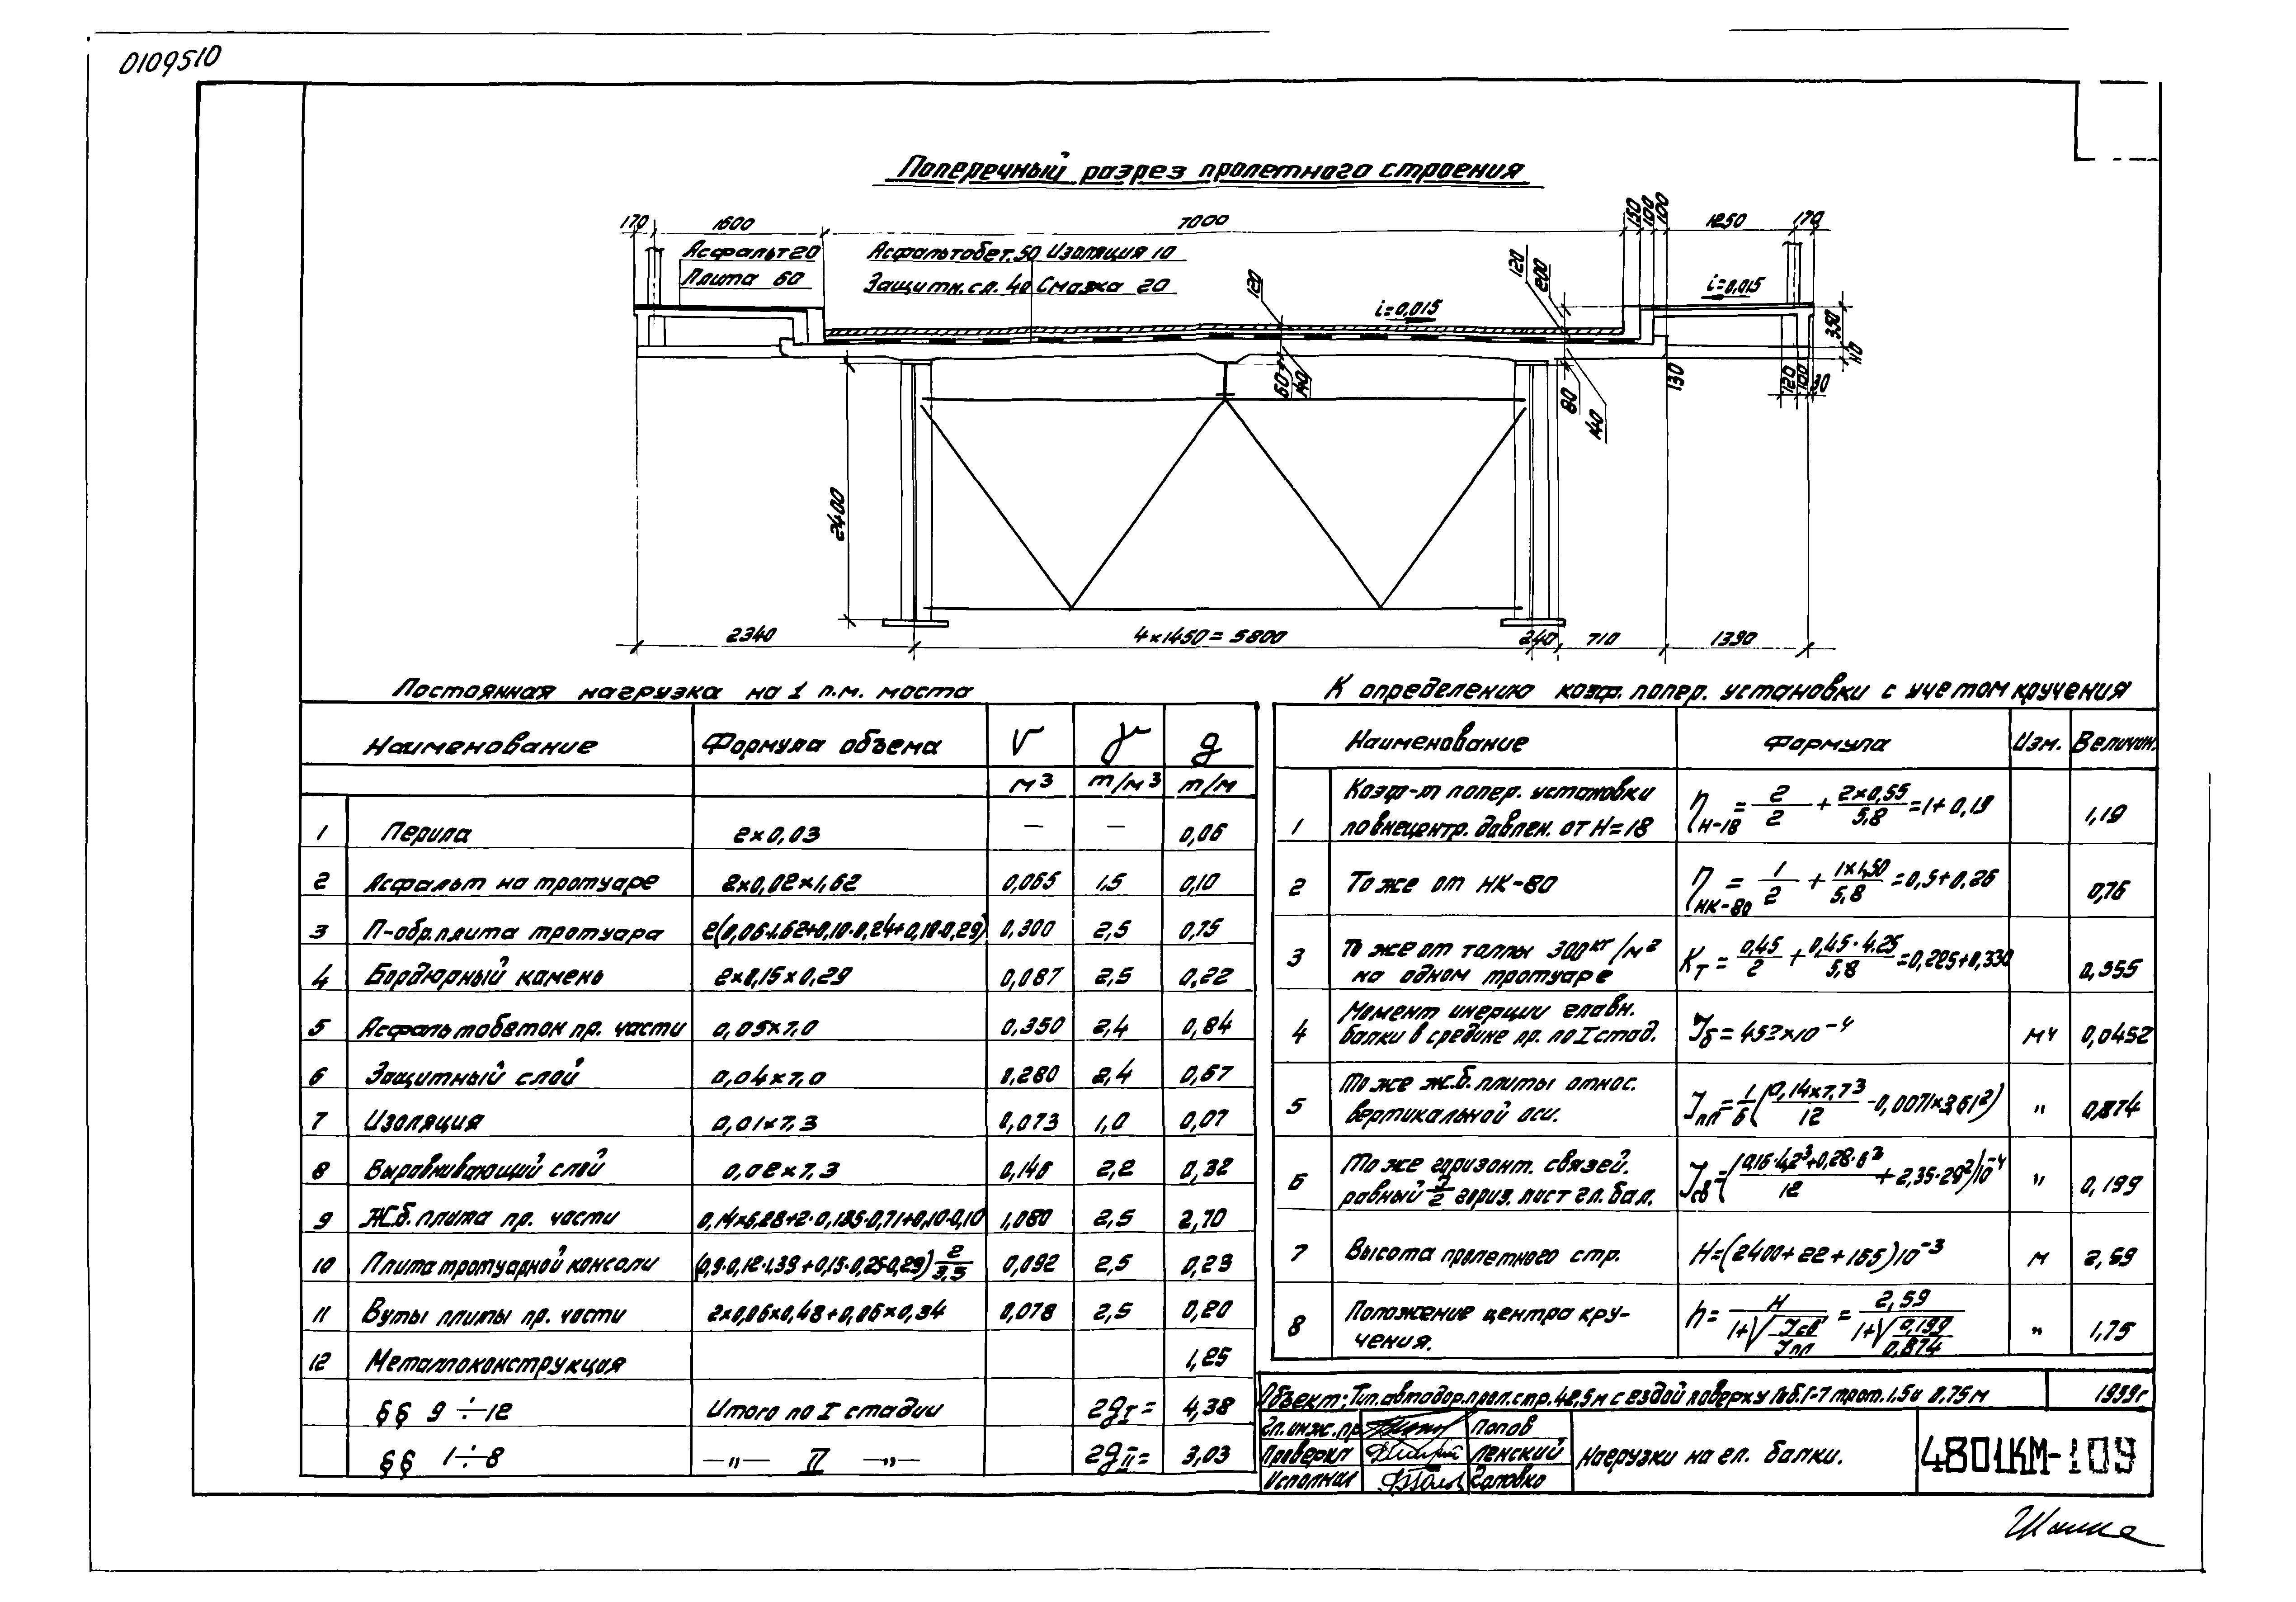 0109510
Поперечный разрез пролетного строения
170 1600 7000 150 100 100 1250 170
Асфальт 20 Асфальтобет. 50 Изоляция 10
Плита 60 Защитн. сл. 40 Смазка 20
120 i=0,015 120 200 i=0,015
350
60 140 80 140 130 120 100 30
2400
2340 4×1450=5800 240 710 1390
Постоянная нагрузка на 1 п.м. моста
Наименование Формула объема V γ g
м³ т/м³ т/м
1 Перила 2×0,03 — — 0,06
2 Асфальт на тротуаре 2×0,02×1,62 0,065 1,5 0,10
3 П-обр. плита тротуара 2(0,06·1,62+0,10·0,24+0,10·0,29) 0,300 2,5 0,75
4 Бордюрный камень 2×0,15×0,29 0,087 2,5 0,22
5 Асфальтобетон пр. части 0,05×7,0 0,350 2,4 0,84
6 Защитный слой 0,04×7,0 0,280 2,4 0,67
7 Изоляция 0,01×7,3 0,073 1,0 0,07
8 Выравнивающий слой 0,02×7,3 0,146 2,2 0,32
9 Ж.б. плита пр. части 0,14×6,28+2·0,135·0,71+0,10·0,10 1,080 2,5 2,70
10 Плита тротуарной консоли (0,9·0,12·1,39+0,15·0,25·0,29) 2/3,5 0,092 2,5 0,23
11 Вуты плиты пр. части 2×0,06×0,48+0,06×0,34 0,078 2,5 0,20
12 Металлоконструкция 1,25
§§ 9÷12 Итого по I стадии 2gI= 4,38
§§ 1÷8 —"— II —"— 2gII= 3,03
К определению коэф. попер. установки с учетом кручения
Наименование Формула Изм. Величин.
1 Коэф-т попер. установки по внецентр. давлен. от Н=18 ηН-18 = 2/2 + 2×0,55/5,8 = 1+0,19 1,19
2 То же от НК-80 ηНК-80 = 1/2 + 1×1,50/5,8 = 0,5+0,26 0,76
3 То же от толпы 300 кг/м² на одном тротуаре Кт = 0,45/2 + 0,45·4,25/5,8 = 0,225+0,330 0,555
4 Момент инерции главн. балки в средине пр. по I стад. Jб = 452×10⁻⁴ м4 0,0452
5 То же ж.б. плиты относ. вертикальной оси. Jпл = 1/6 (0,14×7,7³/12 - 0,0071×3,61²) " 0,874
6 То же горизонт. связей. равный J/2 гориз. лист гл. бал. Jсв = (0,16·42³+0,28·6³/12 + 2,35·29²)10⁻⁴ " 0,199
7 Высота пролетного стр. H=(2400+22+165)10⁻³ м 2,59
8 Положение центра кручения. h = H/(1+√(Jсв/Jпл)) = 2,59/(1+√(0,199/0,874)) " 1,75
Объект: Тип. автодор. прол. стр. 42,5м с ездой поверху Габ. Г-7 трот. 1.5 и 0.75 м 1959г
Гл. инж. пр. Попов
Проверил Ленский
Исполнил Головко
Нагрузки на гл. балки.
4801КМ-109